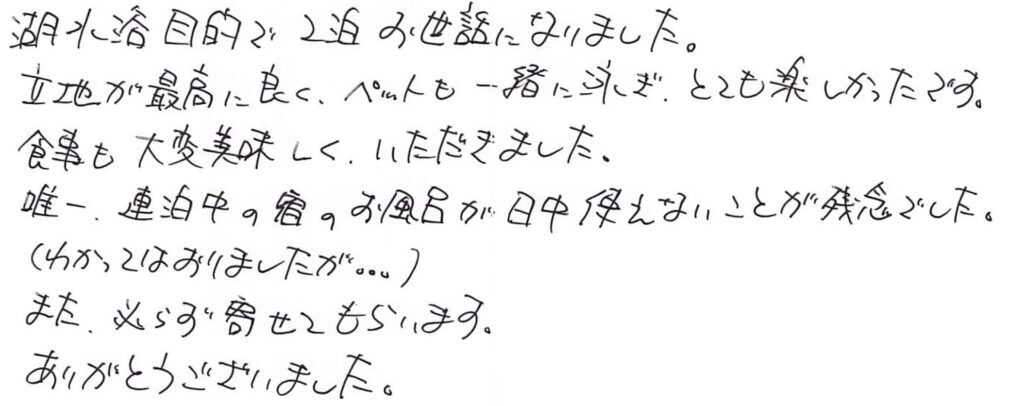 湖水浴目的で2泊お世話になりました。
立地が最高に良く、ペットも一緒に泳ぎ、とても楽しかったです。
食事も大変美味しく、いただきました。
唯一、連泊中の宿のお風呂が日中使えないことが残念でした。
(わかってはおりましたが...)
また、必らず寄せてもらいます。
ありがとうございました。